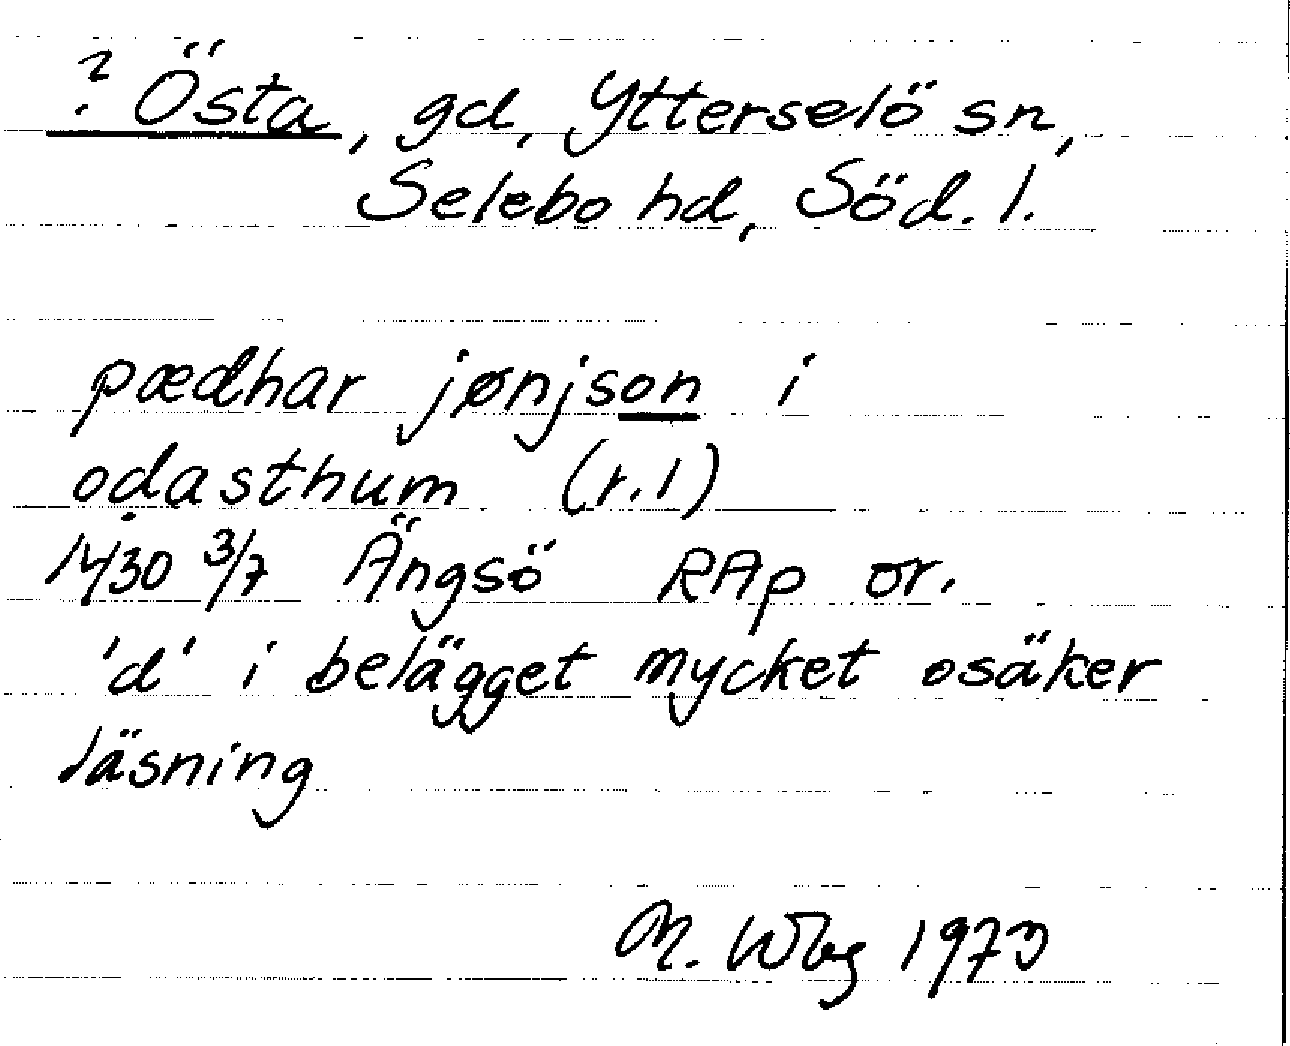 ? Östa, gd, Ytterselö sn,
Selebo hd, Söd. l.
pædhar jønjson i
odasthum (r.1)
1430 3/7 Ängsö RAp or.
'd' i belägget mycket osäker
läsning
M. Wbg 1973